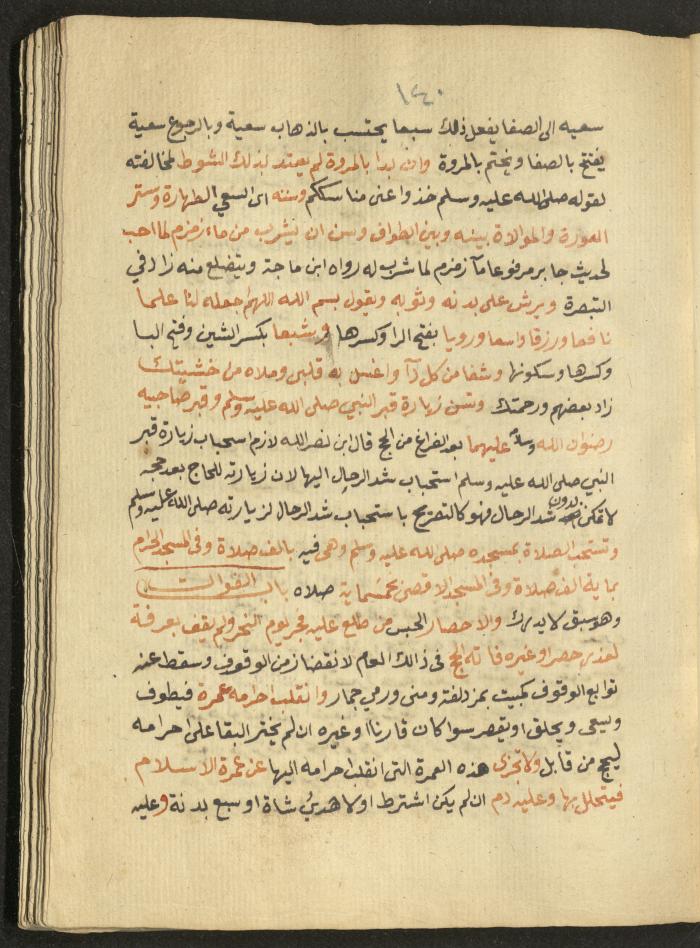 ١٤٠
سعيه الى الصفا يفعل ذلك سبعا يحتسب بالذهاب سعية وبالرجوع سعية
يفتتح بالصفا ويختم بالمروة وان بدا بالمروة لم يعتد بذلك الشوط لمخالفته
لقوله صلى الله عليه وسلم خذوا عنى مناسككم وسنه اى السعي الطهارة وستر
العورة والموالاة بينه وبين الطواف وسن ان يشرب من ماء زمزم لما احب
لحديث جابر مرفوعا مآ زمزم لما شرب له رواه ابن ماجة ويتضلع منه زاد في
التبصرة ويرش على بدنه وثوبه ويقول بسم الله اللهم اجعله لنا علما
نافعا ورزقا واسعا ورويا بفتح الرا وكسرها وشبعا بكسر الشين وفتح البا
وكسرها وسكونها وشفا من كل دآ واغسل به قلبى وملاه من خشيتك
زاد بعضهم ورحمتك وتسن زيارة قبر النبي صلى الله عليه وسلم وقبر صاحبيه
رضوان الله وسلا عليهما بعد الفراغ من الحج قال ابن نصر الله لازم استحباب زيارة قبر
النبي صلى الله عليه وسلم استحباب شد الرحال اليها لان زيارته للحاج بعد حجه
لا تمكن بدون شد الرحال فهو كالتصريح باستحباب شد الرحال لزيارته صلى الله عليه وسلم
وتستحب الصلاة بمسجده صلى الله عليه وسلم وهى فيه بالف صلاة وفى المسجد الحرام
بماية الف صلاة وفى المسجد الاقصى بخمسماية صلاه باب الفوات
وهو سبق لا يدرك والاحصار الحبس من طلع عليه فجر يوم النحر ولم يقف بعرفة
لعذر حصر او غيره فاته الحج فى ذالك العام لانقضا زمن الوقوف وسقط عنه
توابع الوقوف كمبيت بمزدلفة ومنى ورمي جمار وانقلب احرامه عمرة فيطوف
ويسعى ويحلق او يقصر سوا كان قارنا او غيره ان لم يختر البقا على احرامه
ليحج من قابل ولا تجزى هذه العمرة التى انقلب احرامه اليها عن عمرة الاسلام
فيتحلل بها وعليه دم ان لم يكن اشترط اولا هدي شاة او سبع بدنة وعليه